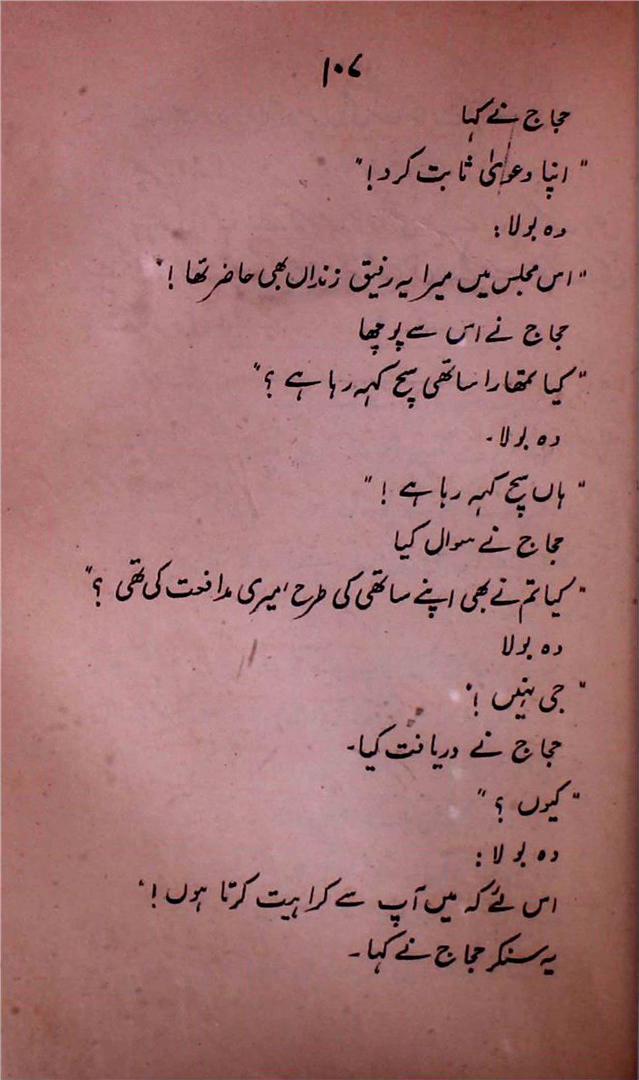 ۱۰۷
حجاج نے کہا
"اپنا دعویٰ ثابت کرد!"
دہ بولا:
"اس مجلس میں میرا یہ رفیق زنداں بھی حاضر تھا!"
حجاج نے اس سے پوچھا
"کیا تمھارا ساتھی سچ کہہ رہا ہے ؟"
دہ بولا۔
"ہاں سچ کہہ رہا ہے !"
حجاج نے سوال کیا
"کیا تم نے بھی اپنے ساتھی کی طرح میری مدافعت کی تھی ؟"
دہ بولا
"جی نہیں !"
حجاج نے دریافت کیا۔
"کیوں ؟"
دہ بولا:
اس لئے کہ میں آپ سے کراہیت کرتا ہوں!"
یہ سنکر حجاج نے کہا۔